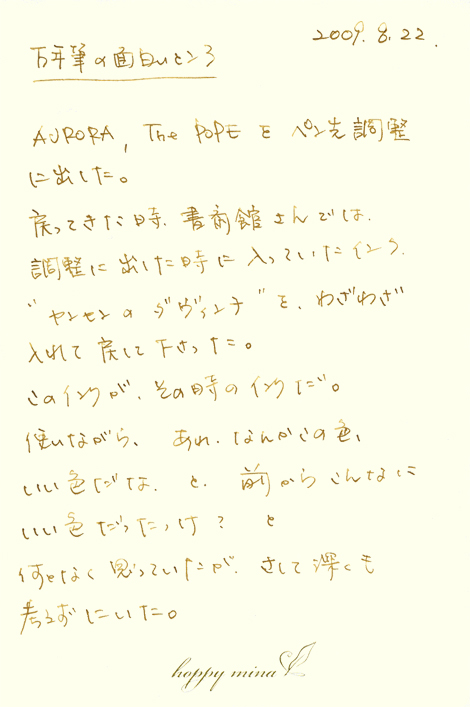 2009. 8. 22.
万年筆の面白いところ
AURORA, The POPE を ペン先調整
に出した。
戻ってきた時、書斎館さんでは、
調整に出した時に入っていたインク、
"ヤンセンのダヴィンチ"を、わざわざ
入れて戻して下さった。
このインクが、その時のインクだ。
使いながら、あれ、なんかこの色、
いい色だな、と、前からこんなに
いい色だったっけ？と
何となく思っていたが、さして深くも
考えずにいた。
happy mina